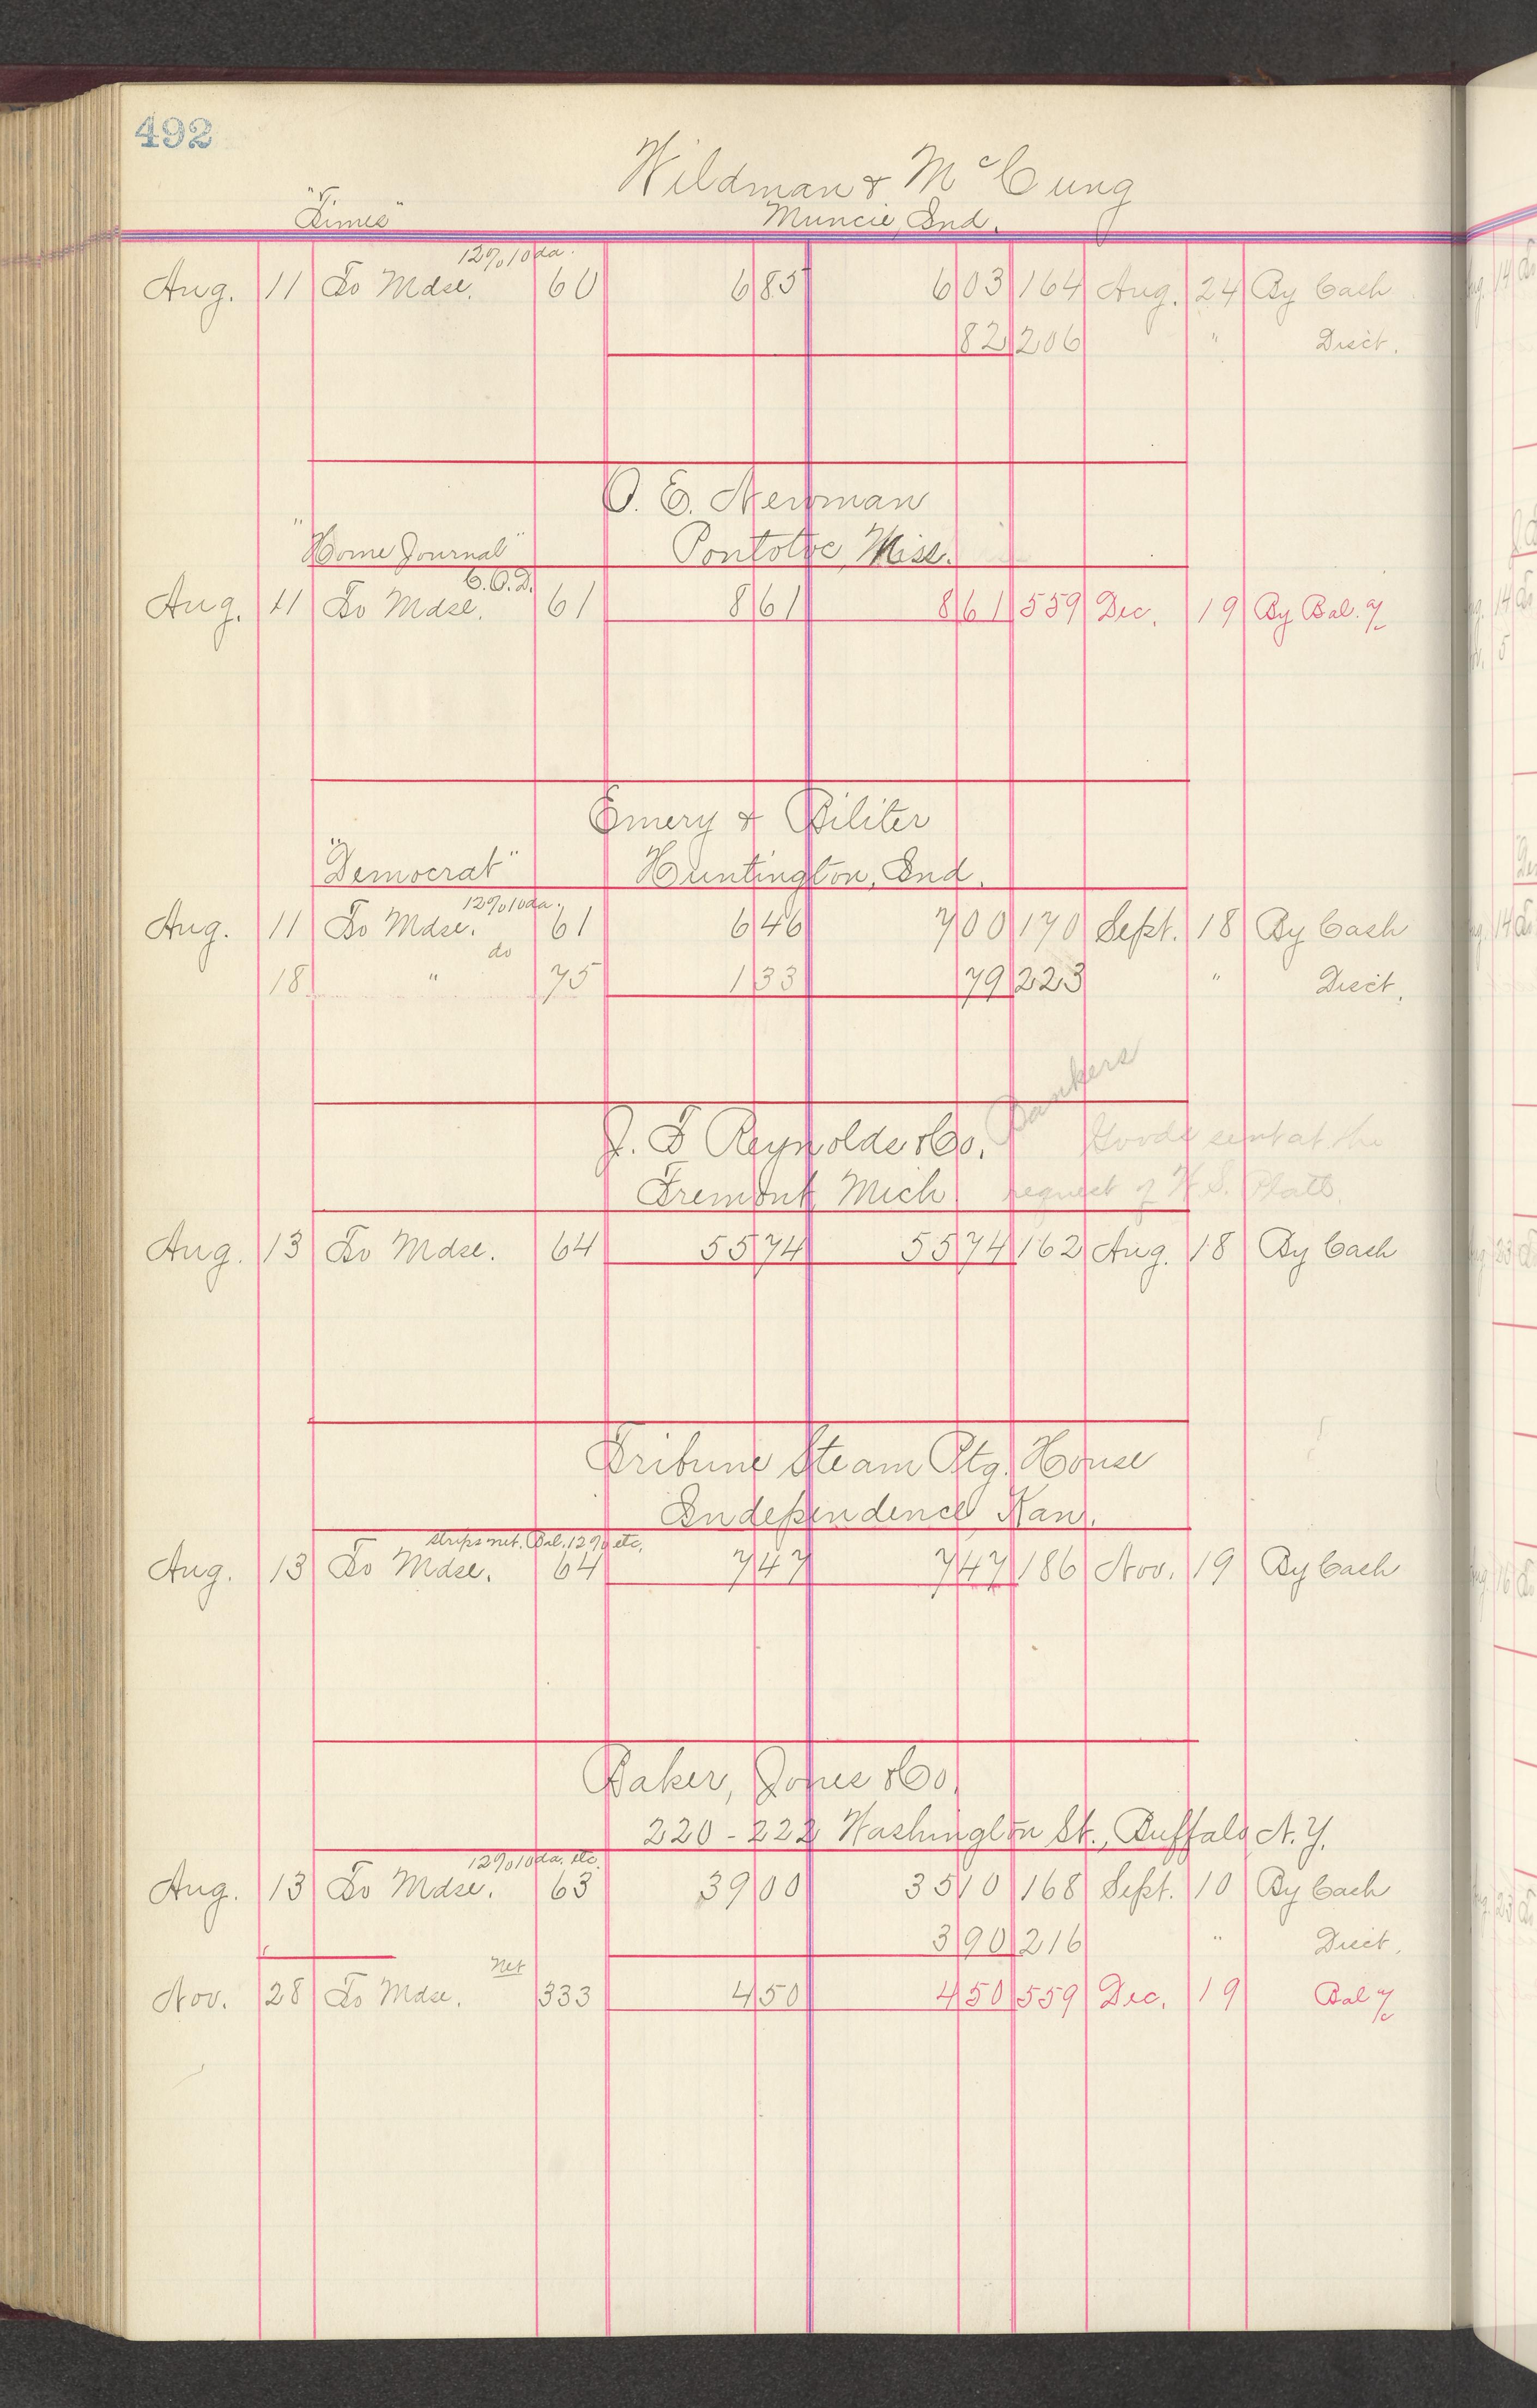 492
Wildman & McCung
"Times" Muncie, Ind.
12% 10 da.
Aug. 11 To Mdse. 60 6 85 6 03 164 Aug. 24 By Cash
82 206 " Disct.
O. E. Newman
"Home Journal" Pontotoc, Miss.
C.O.D.
Aug. 11 To Mdse. 61 8 61 8 61 559 Dec. 19 By Bal. %
Emery & Biliter
"Democrat" Huntington, Ind.
12% 10 da.
Aug. 11 To Mdse. 61 6 46 7 00 170 Sept. 18 By Cash
do
18 " 75 1 33 79 223 " Disct.
Bankers
J. F Reynolds & Co. Goods sent at the
Fremont Mich request of W. S. Platt.
Aug. 13 To Mdse. 64 55 74 55 74 162 Aug. 18 By Cash
Tribune Steam Ptg. House
Independence Kan.
Strips net. Bal. 12% etc.
Aug. 13 To Mdse. 64 7 47 7 47 186 Nov. 19 By Cash
Baker, Jones & Co.
220 - 222 Washington St., Buffalo N.Y.
12% 10 da. etc.
Aug. 13 To Mdse. 63 39 00 35 10 168 Sept. 10 By Cash
3 90 216 " Disct.
Net
Nov. 28 To Mdse. 333 4 50 4 50 559 Dec. 19 Bal %